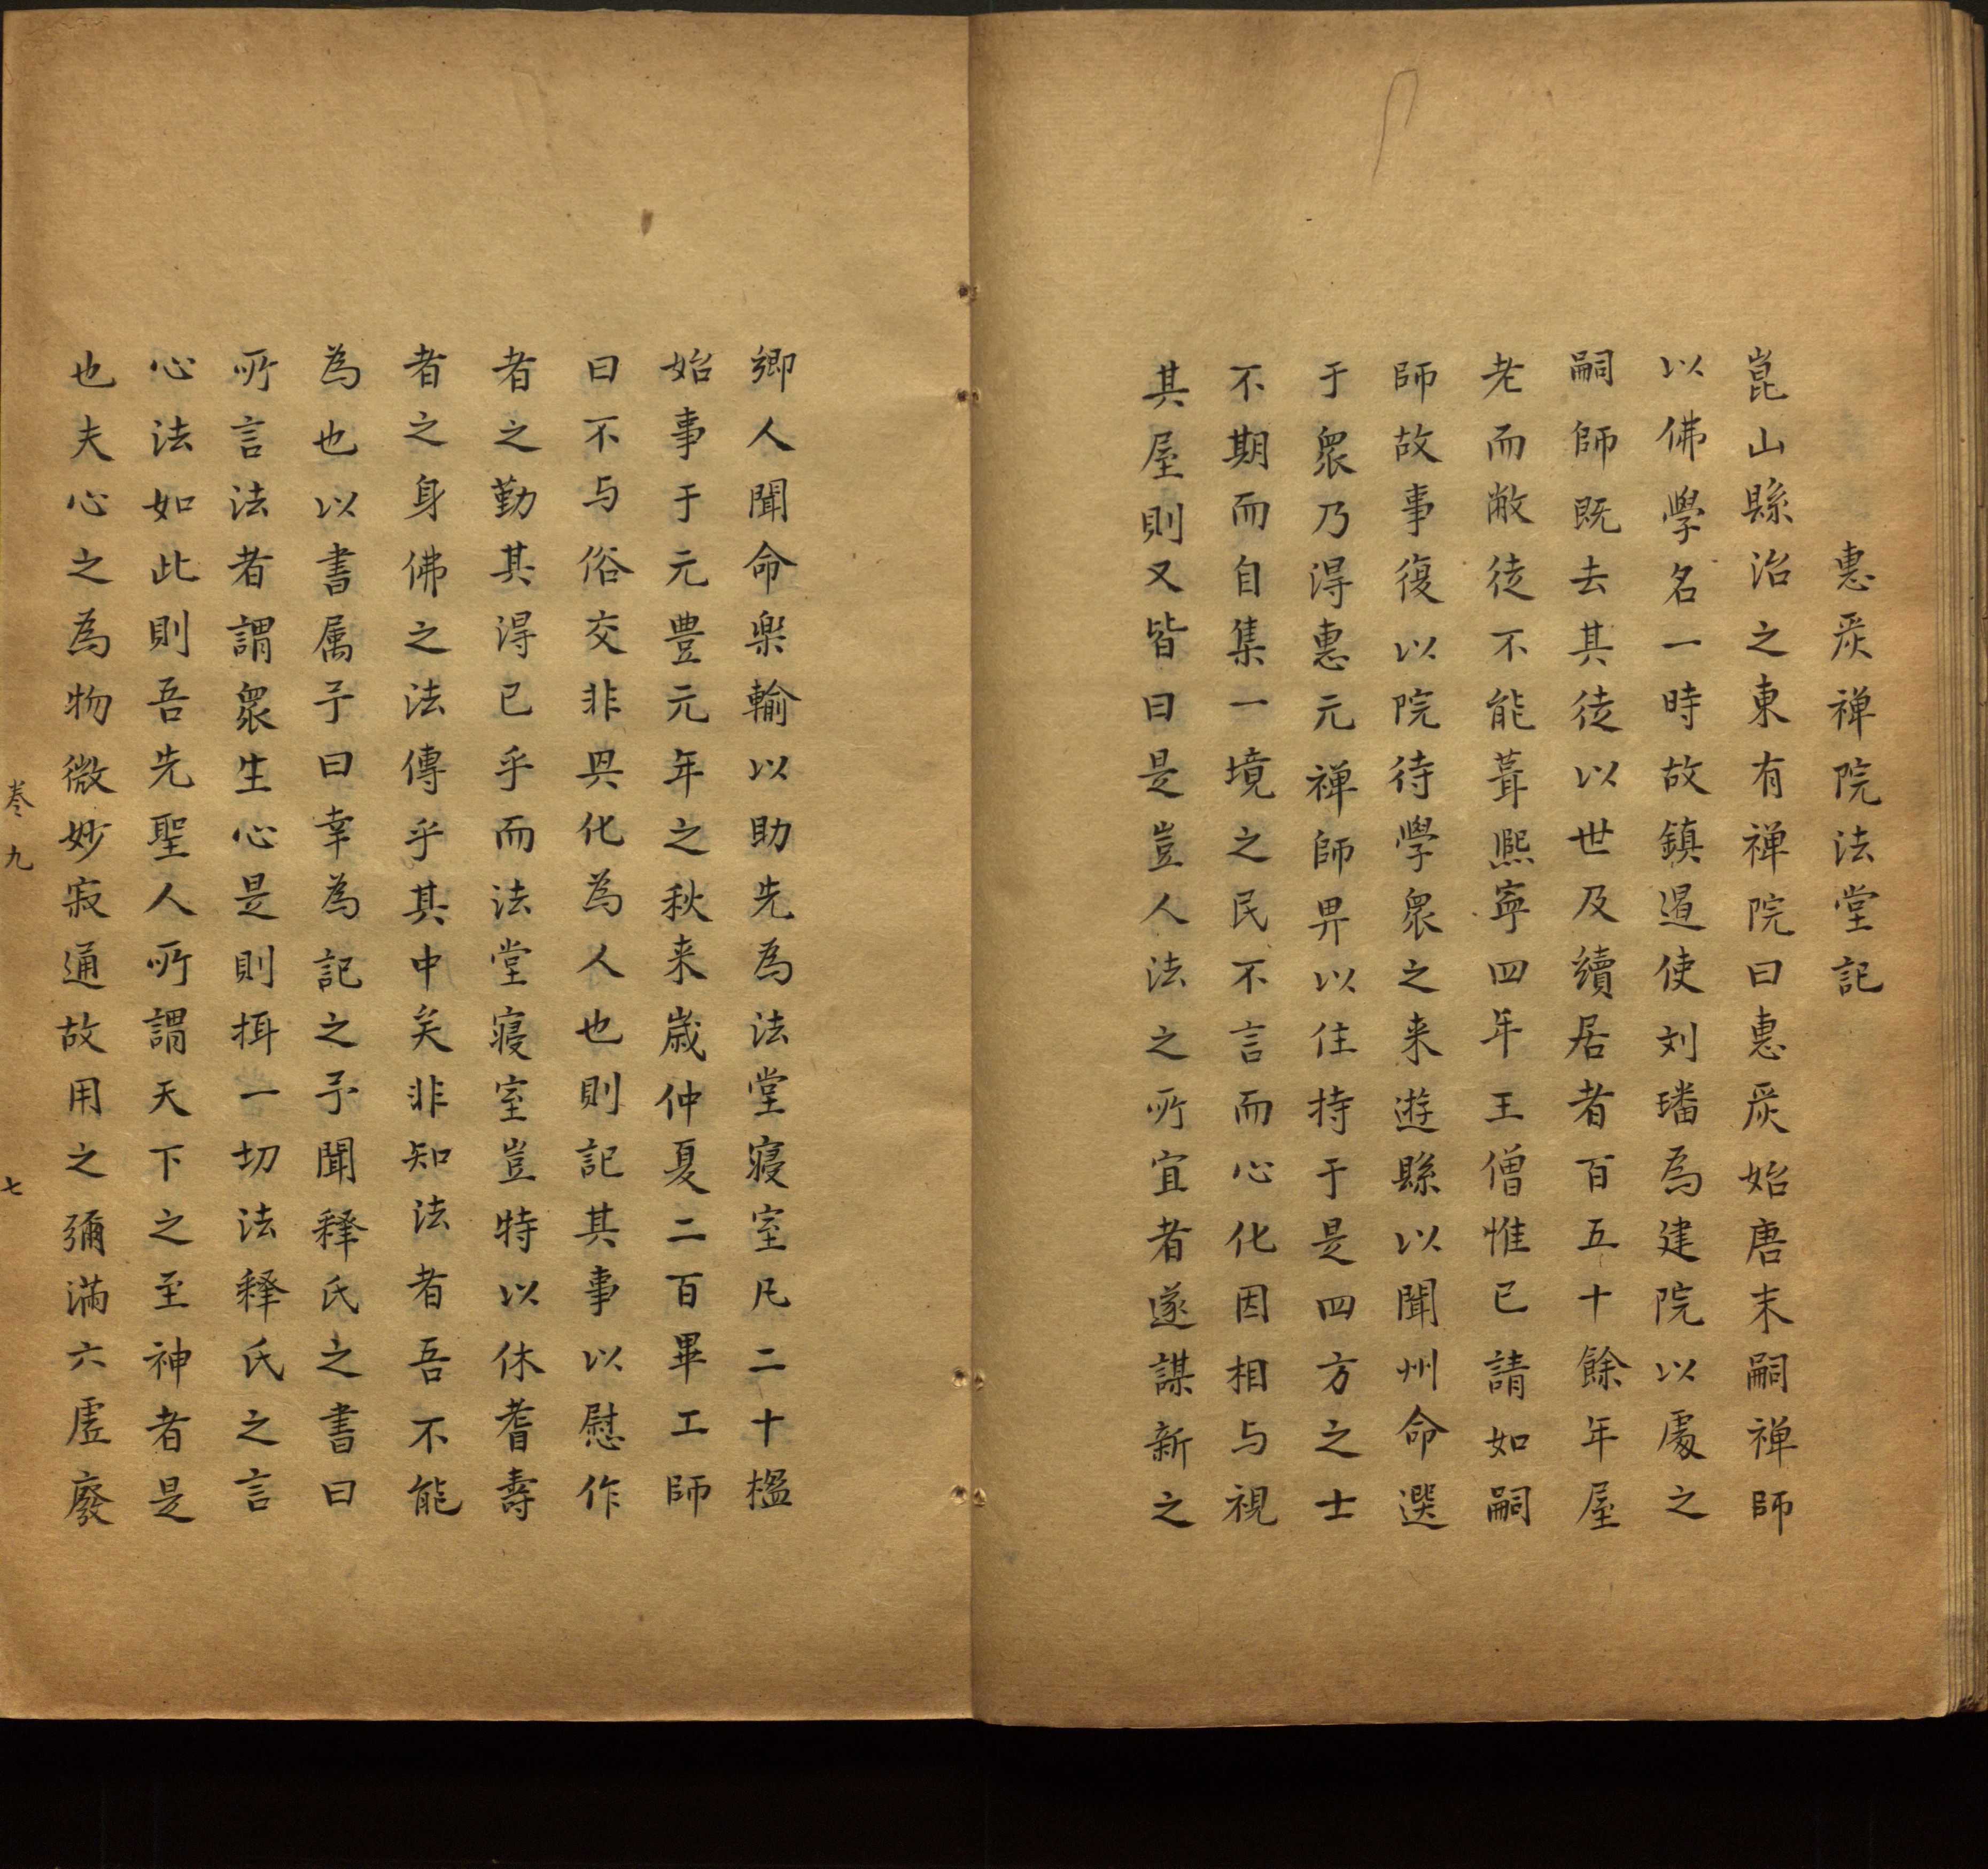 惠炭禅院法堂記
崑山縣治之東有禅院曰惠炭始唐末嗣禅師
以佛學名一時故鎮遏使刘璠為建院以處之
嗣師既去其徒以世及續居者百五十餘年屋
老而敝徒不能葺熙寧四年王僧惟已請如嗣
師故事復以院待學衆之来遊縣以聞州命選
于衆乃得惠元禅師畀以住持于是四方之士
不期而自集一境之民不言而心化因相与視
其屋則又皆曰是豈人法之所宜者遂謀新之
鄉人聞命楽輸以助先為法堂寝室凡二十楹
始事于元豊元年之秋来歳仲夏二百畢工師
曰不与俗交非異化為人也則記其事以慰作
者之勤其得已乎而法堂寝室豈特以休耆壽
者之身佛之法傳乎其中矣非知法者吾不能
為也以書属予曰幸為記之予聞釋氏之書曰
所言法者謂衆生心是則揖一切法釋氏之言
心法如此則吾先聖人所謂天下之至神者是
也夫心之為物微妙寂通故用之彌満六虚廢
卷九
七